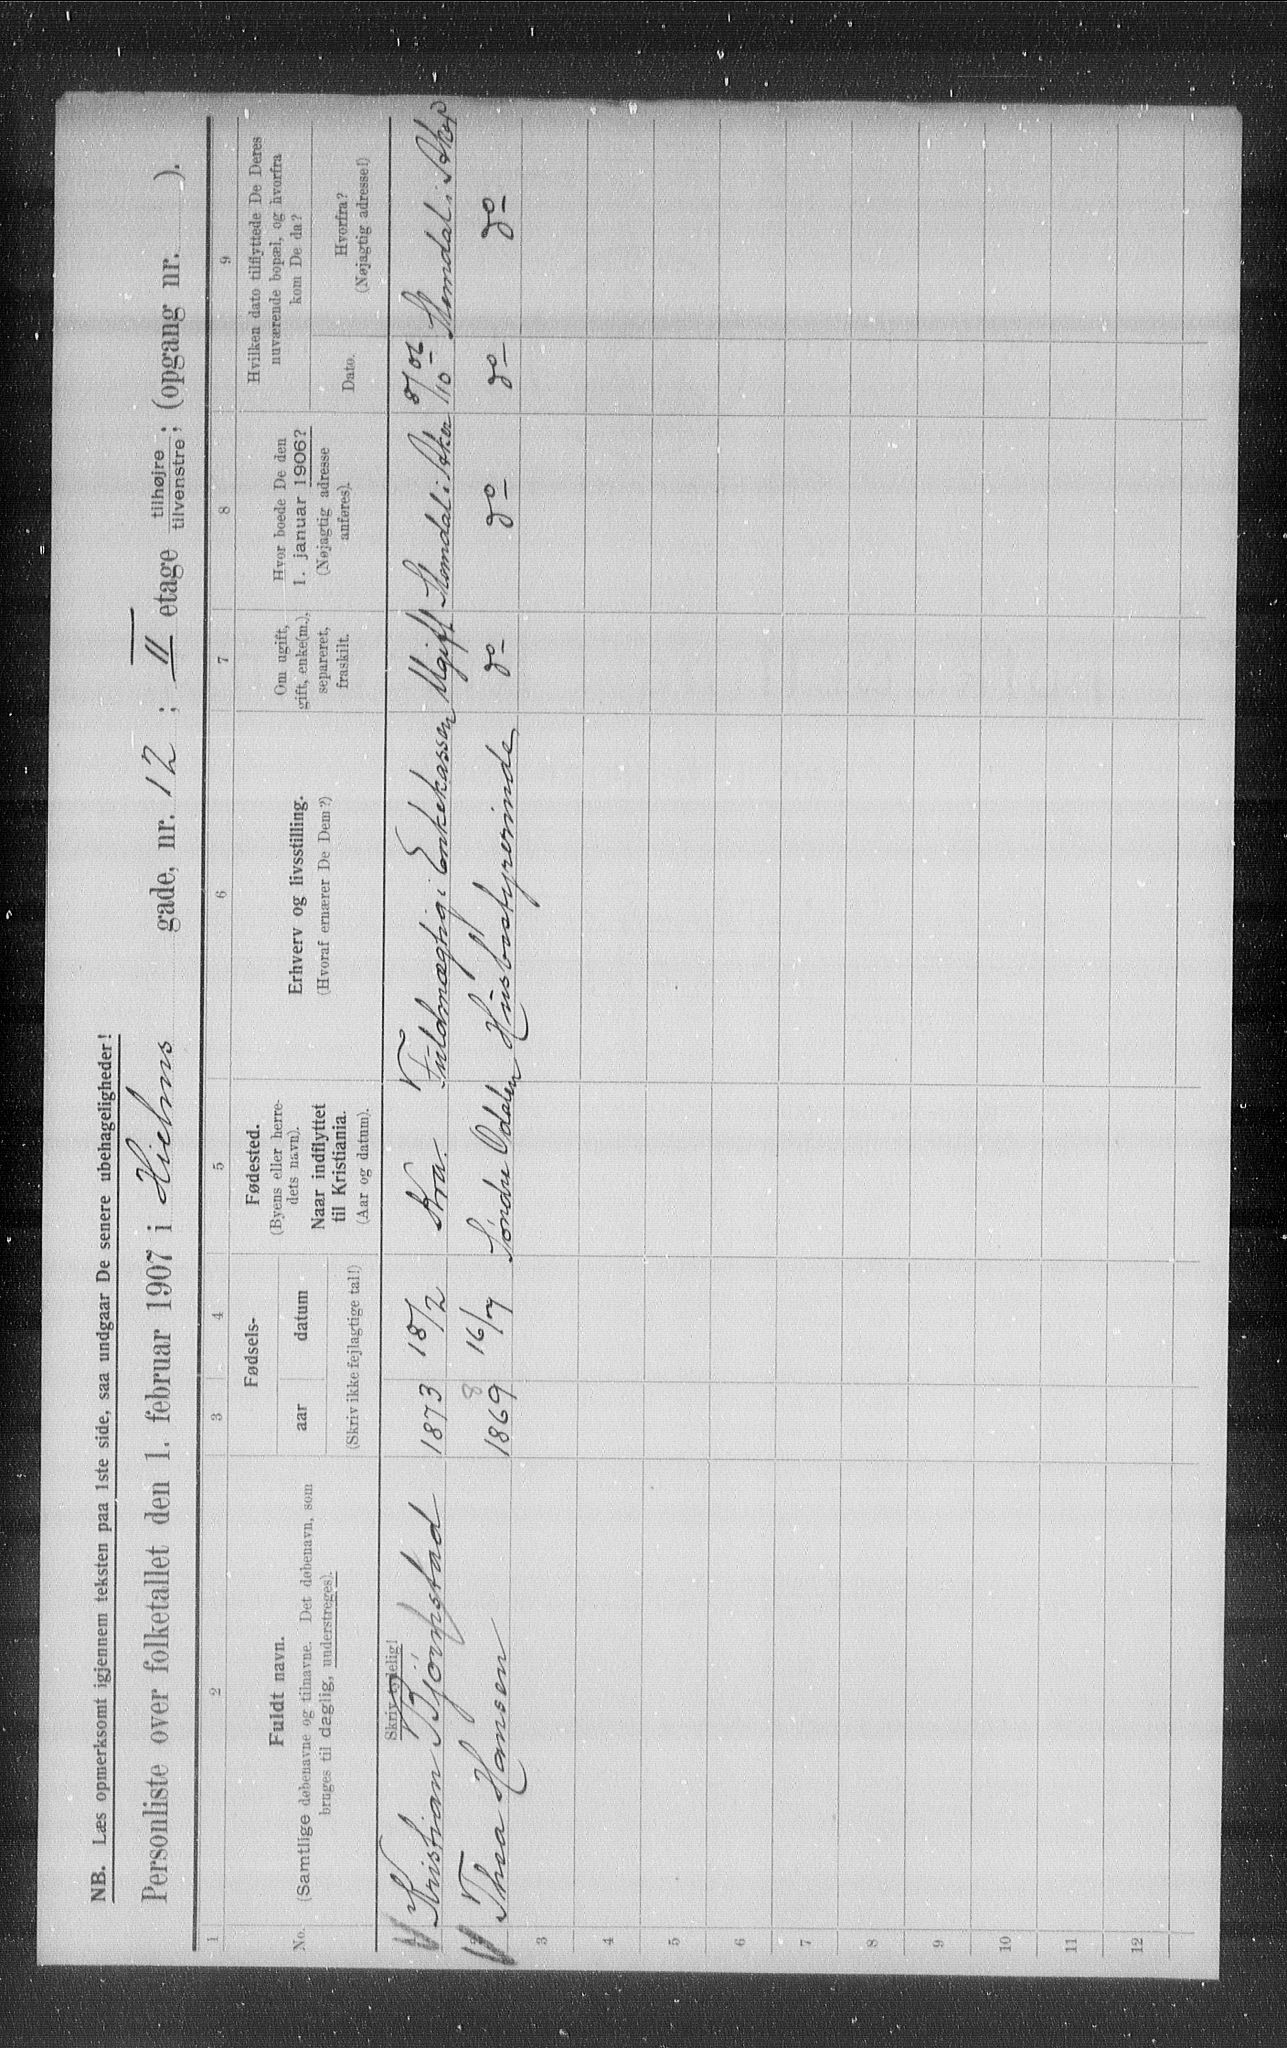 NB. Læs opmerksomt igjennem teksten paa 1ste side, saa undgaar De senere ubehageligheder!
Personliste over folketallet den 1. februar 1907 i Hielms gade, nr. 12 ; II etage tilhøjre / tilvenstre ; (opgang nr. ).
1 2 3 4 5 6 7 8 9
No.
Fuldt navn.
(Samtlige døbenavne og tilnavne. Det døbenavn, som
bruges til daglig, understreges).
Fødsels-
aar datum
(Skriv ikke fejlagtige tal!)
Fødested.
(Byens eller herre-
dets navn).
Naar indflyttet
til Kristiania.
(Aar og datum).
Erhverv og livsstilling.
(Hvoraf ernærer De Dem?)
Om ugift,
gift, enke(m.),
separeret,
fraskilt.
Hvor boede De den
1. januar 1906?
(Nøjagtig adresse
anføres).
Hvilken dato tilflyttede De Deres
nuværende bopæl, og hvorfra
kom De da?
Dato.
Hvorfra?
(Nøjagtig adresse!)
Skriv tydelig!
Kristian Bjørnstad 1873 18/2 Kra. Fuldmægtig i Enkekassen Ugift Slemdal i Aker 8/10 06 Slemdal i Aker
2 Thea Hansen 1869 8 16/7 Søndre Odalen Husbestyrerinde do do do do
3
4
5
6
7
8
9
10
11
12